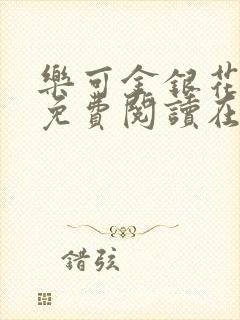 樂可金銀花
免費閱讀在
錯弦